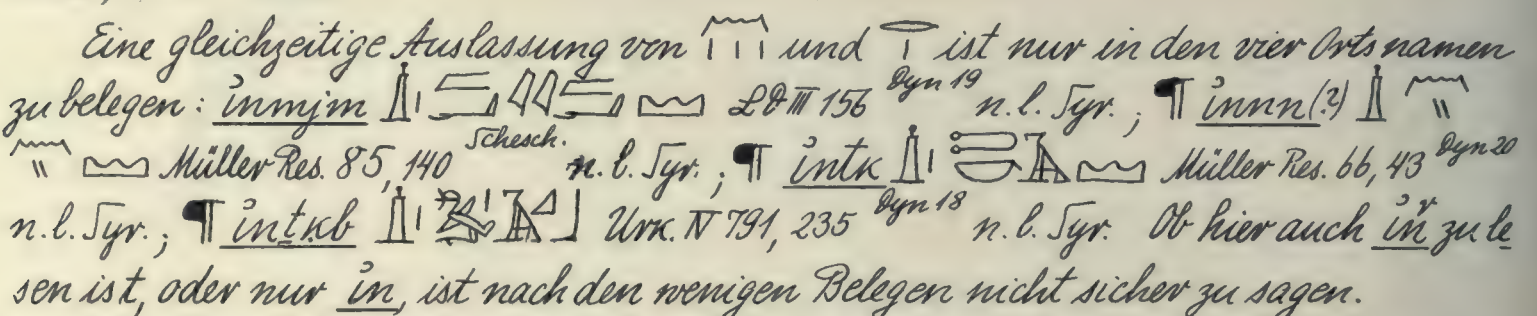 Eine gleichzeitige Auslassung von 𓈖𓏥 und 𓂋𓏤 ist nur in den vier Ortsnamen
zu belegen: i̓nmjm LD III 156 Dyn 19 n. l. Syr.; ¶ i̓nnn(?)
Müller Res. 85, 140 Schesch. n. l. Syr.; ¶ i̓ntk Müller Res. 66, 43 Dyn 20
n. l. Syr.; ¶ i̓nṯkb Urk. IV 791, 235 Dyn 18 n. l. Syr. Ob hier auch i̓nͬ zu le
sen ist, oder nur i̓n, ist nach den wenigen Belegen nicht sicher zu sagen.